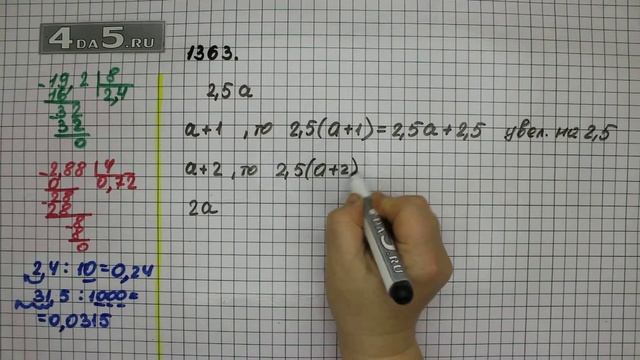 4DA5.RU
1363.
2,5a
a+1 , то 2,5(a+1)=2,5a+2,5 увел. на 2,5
a+2 , то 2,5(a+2)
2a
19,2 8
16 2,4
32
32
0
2,88 4
0 0,72
28
28
8
8
0
2,4 : 10 = 0,24
31,5 : 1000 =
=0,0315
4DA5.RU